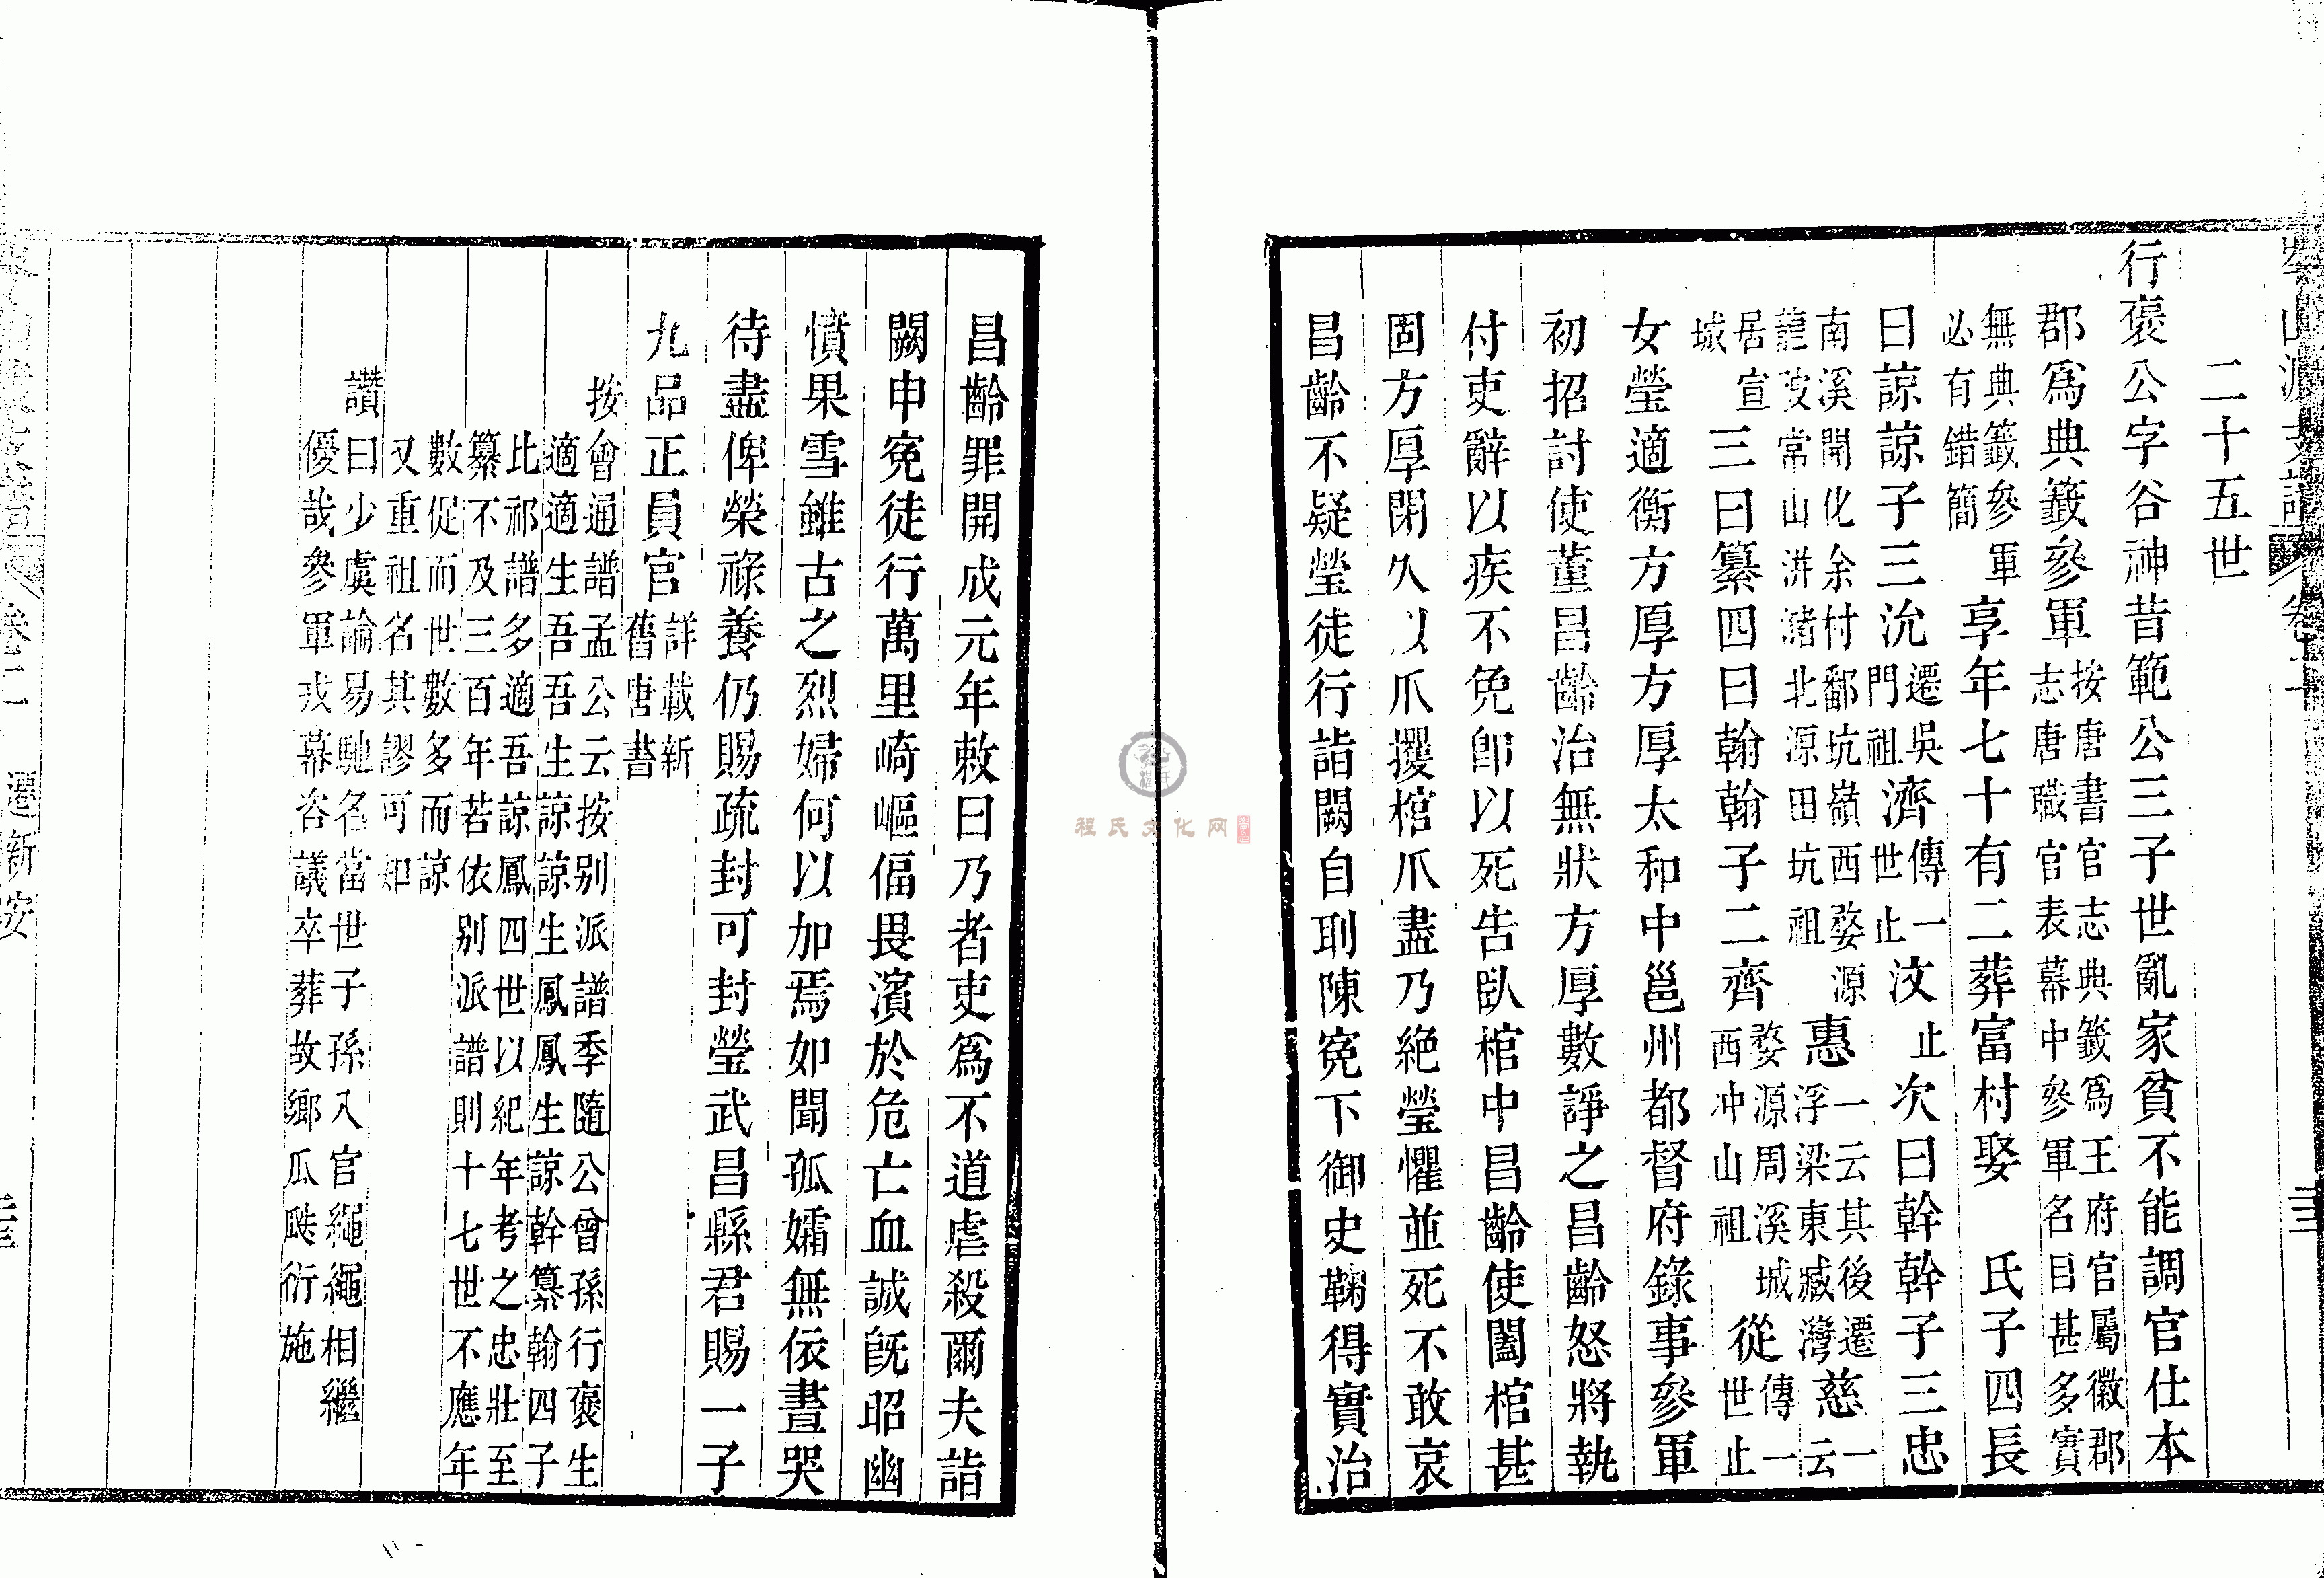 二十五世
行褒公字谷神昔範公三子世亂家貧不能調官仕本
郡爲典籤參軍按唐書官志典籤爲王府官屬徽郡
志唐職官表幕中參軍名目甚多實
無典籤參軍
必有錯簡享年七十有二葬富村娶 氏子四長
曰諒諒子三沇遷吳門祖濟傳一世止汶止次曰幹幹子三忠
南溪開化余村鄱坑嶺西婺源
龍陂常山洴瀦北源田坑祖惠一云其後遷浮梁東臧灣慈一云
居宣城三曰纂四曰翰翰子二齊婺源周溪城西冲山祖從傳一世止
女瑩適衡方厚方厚太和中邕州都督府錄事參軍
初招討使董昌齡治無狀方厚數諍之昌齡怒將執
付吏辭以疾不免卽以死告臥棺中昌齡使闔棺甚
固方厚閉久以爪攫棺爪盡乃絕瑩懼並死不敢哀
昌齡不疑瑩徒行詣闕自刵陳寃下御史鞠得實治
昌齡罪開成元年敕曰乃者吏爲不道虐殺爾夫詣
闕申寃徒行萬里崎嶇偪畏濱於危亡血誠旣昭幽
憤果雪雖古之烈婦何以加焉如聞孤孀無依晝哭
待盡俾榮祿養仍賜疏封可封瑩武昌縣君賜一子
九品正員官詳載新舊唐書
按會通譜孟公云按别派譜季隨公曾孫行褒生
適適生吾吾生諒諒生鳳鳳生諒幹纂翰四子
比祁譜多適吾諒鳳四世以紀年考之忠壯至
纂不及三百年若依别派譜則十七世不應年
數促而世數多而諒
又重祖名其謬可知
讚曰少虞論易馳名當世子孫入官繩繩相繼
優哉參軍戎幕咨議卒葬故鄉瓜瓞衍施
遷新安
程氏文化网